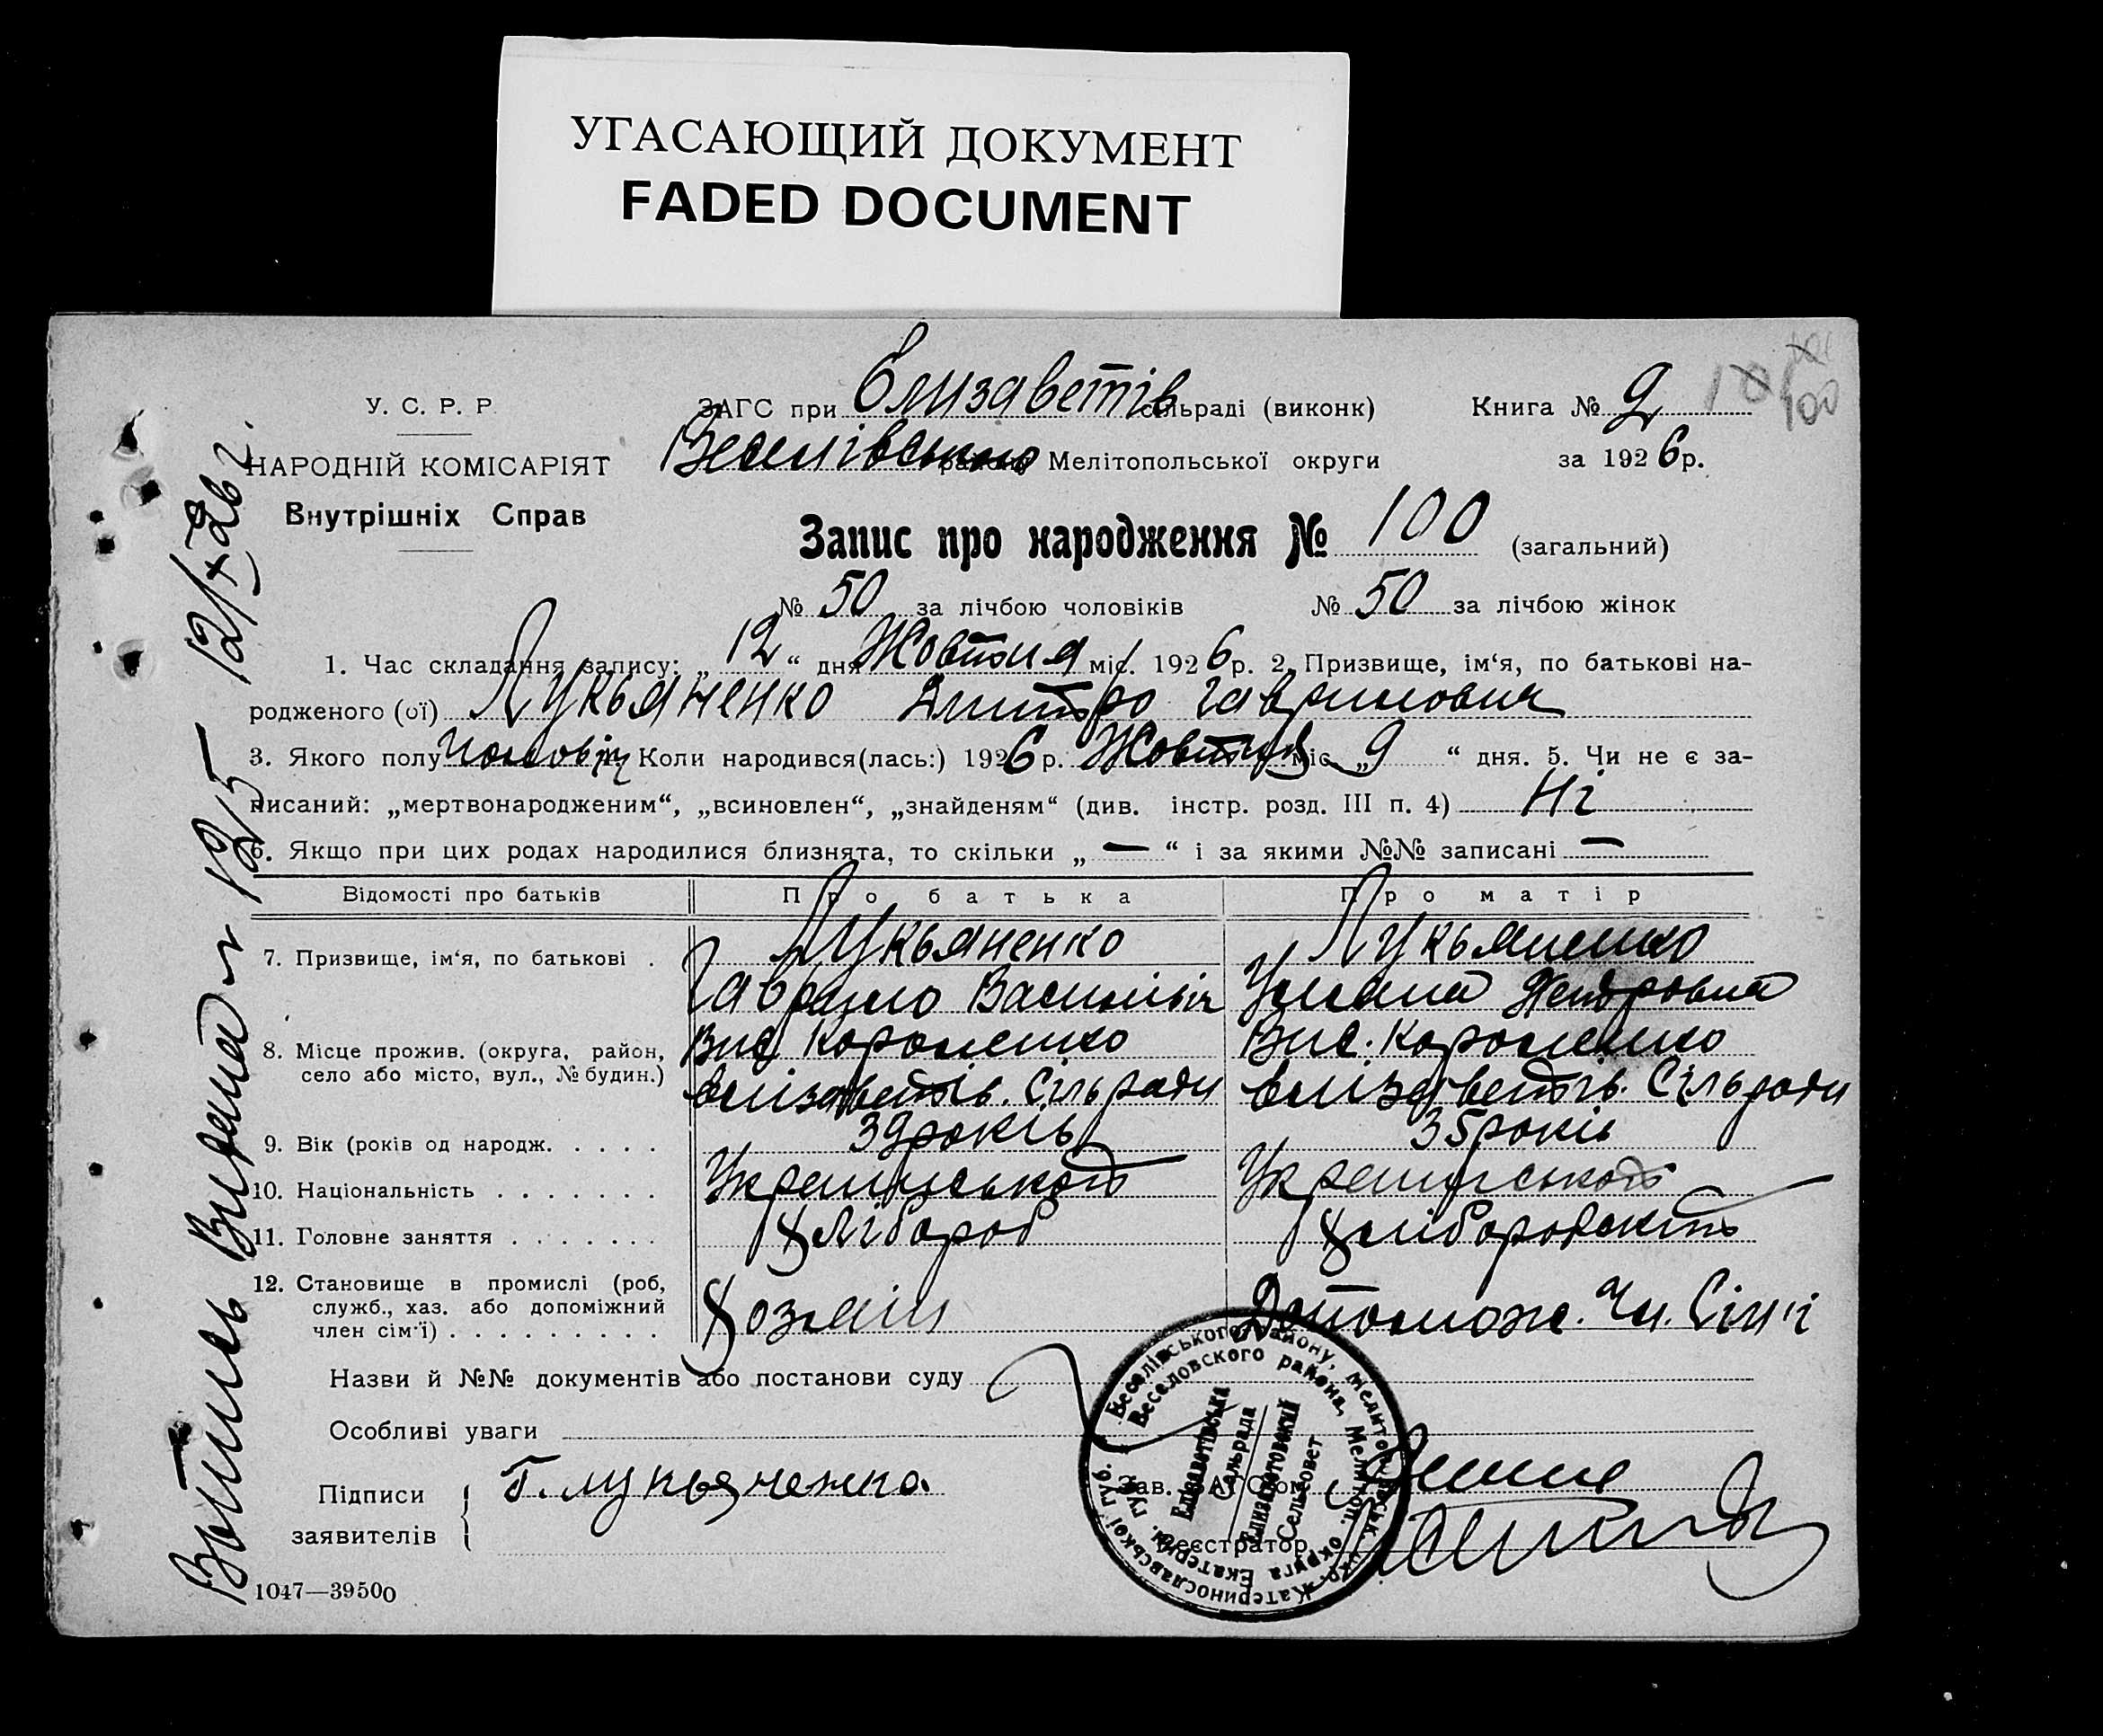 УГАСАЮЩИЙ ДОКУМЕНТ
FADED DOCUMENT
У. С. Р. Р.
НАРОДНІЙ КОМІСАРІЯТ
Внутрішніх Справ
ЗАГС при Єлизаветів сільраді (виконк)
Веселівського району Мелітопольської округи
Книга № 2
100
за 1926р.
Запис про народження № 100 (загальний)
№ 50 за лічбою чоловіків № 50 за лічбою жінок
1. Час складання запису: „12“ дня Жовтня міс. 1926р. 2. Призвище, ім‘я, по батькові на-
родженого (ої) Лукьяненко Дмитро Гаврилович
3. Якого полу чоловіч Коли народився(лась:) 1926 р. Жовтня міс. „9“ дня. 5. Чи не є за-
писаний: „мертвонародженим“, „всиновлен“, „знайденям“ (див. інстр. розд. III п. 4) Ні
6. Якщо при цих родах народилися близнята, то скільки „—“ і за якими №№ записані —
Відомості про батьків Про батька Про матір
7. Призвище, ім‘я, по батькові . Лукьяненко Лукьяненко
Гаврило Васильів Уляна
8. Місце прожив. (округа, район, село або місто, вул., № будин.) Вис. Короленко Вис. Короленко
Єлізаветів. Сільради Єлізаветів. Сільради
9. Вік (років од народж. . . . . 39 років 35 років
10. Національність . . . . . . . Українськой Українськой
11. Головне заняття . . . . . . . Хлібороб Хліборобскть
12. Становище в промислі (роб, служб., хаз. або допоміжний член сім‘ї) . . . . . . . . . Хозяїн Допомож. Чл. Сімї
Назви й №№ документів або постанови суду
Особливі уваги
Підписи заявителів { Г. лукьяненко.
Зав. ЗАГСом
Реєстратор
Веселівського району, Мелітопольськ. окр. Катеринославської губ.
Веселовского района, Мелитоп. округа Екатерин. губ.
Елізаветівська Сільрада
Елизаветовский Сельсовет
1047—39500
Витяг Видана № 1215 12/X 26 г.